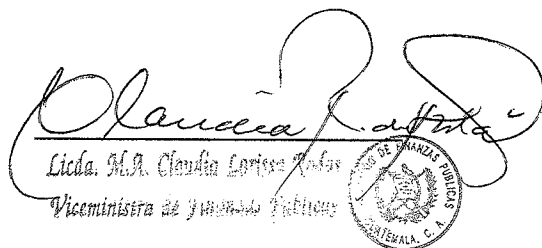 Claudia
Licda. M.A. Claudia Larissa Rodas
Viceministra de Finanzas Públicas
DE FINANZAS PUBLICAS
GUATEMALA, C. A.